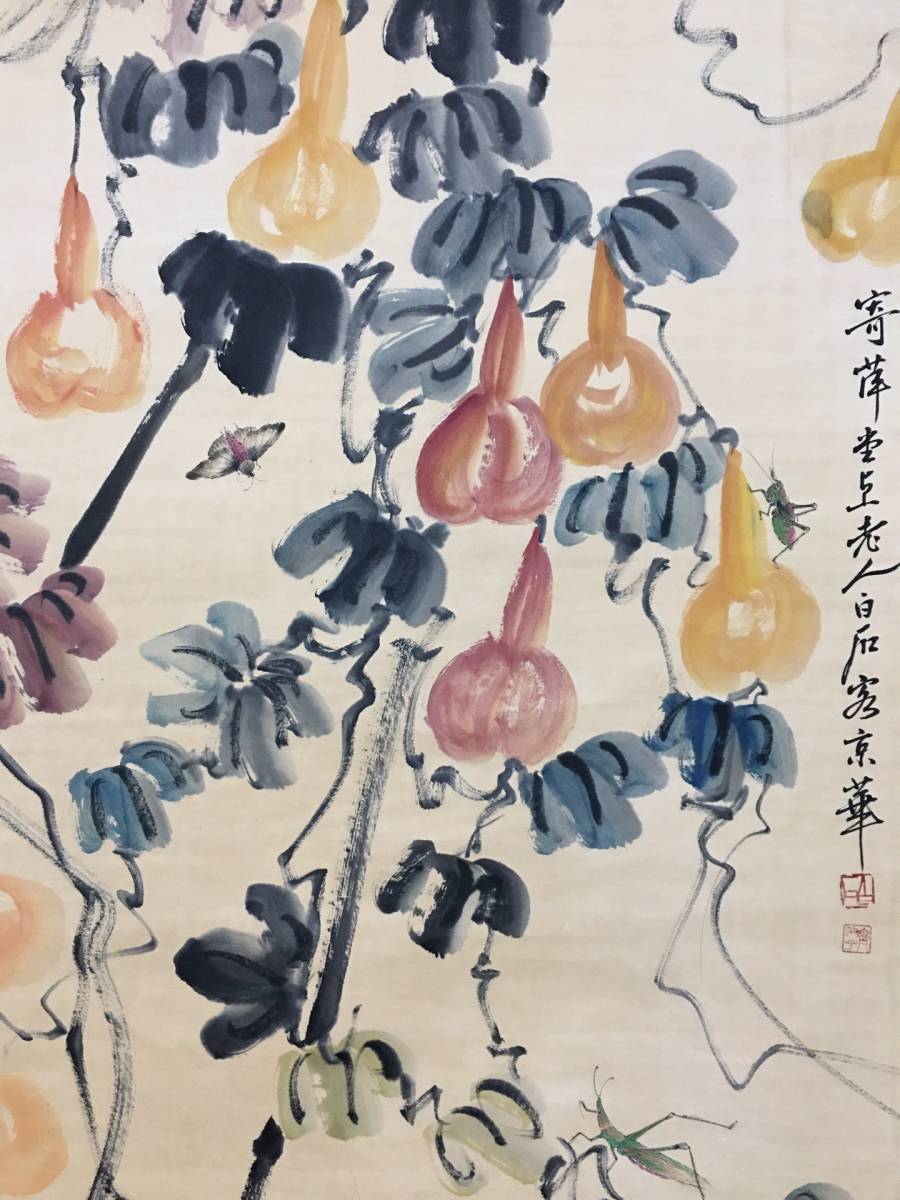 寄萍堂上老人白石客京華